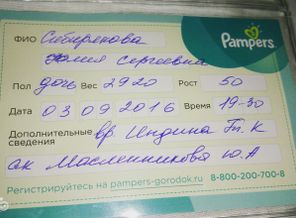 Pampers
ФИО Сибирякова
Юлия Сергеевна
Пол дочь Вес 2920 Рост 50
Дата 03 09 2016 Время 19-30
Дополнительные сведения вр. Индина Т. К
ак Масленникова Ю.А
Регистрируйтесь на pampers-gorodok.ru 8-800-200-700-8